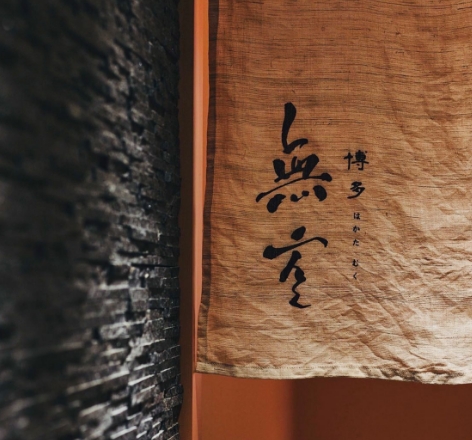 博多 はかた むく
無空